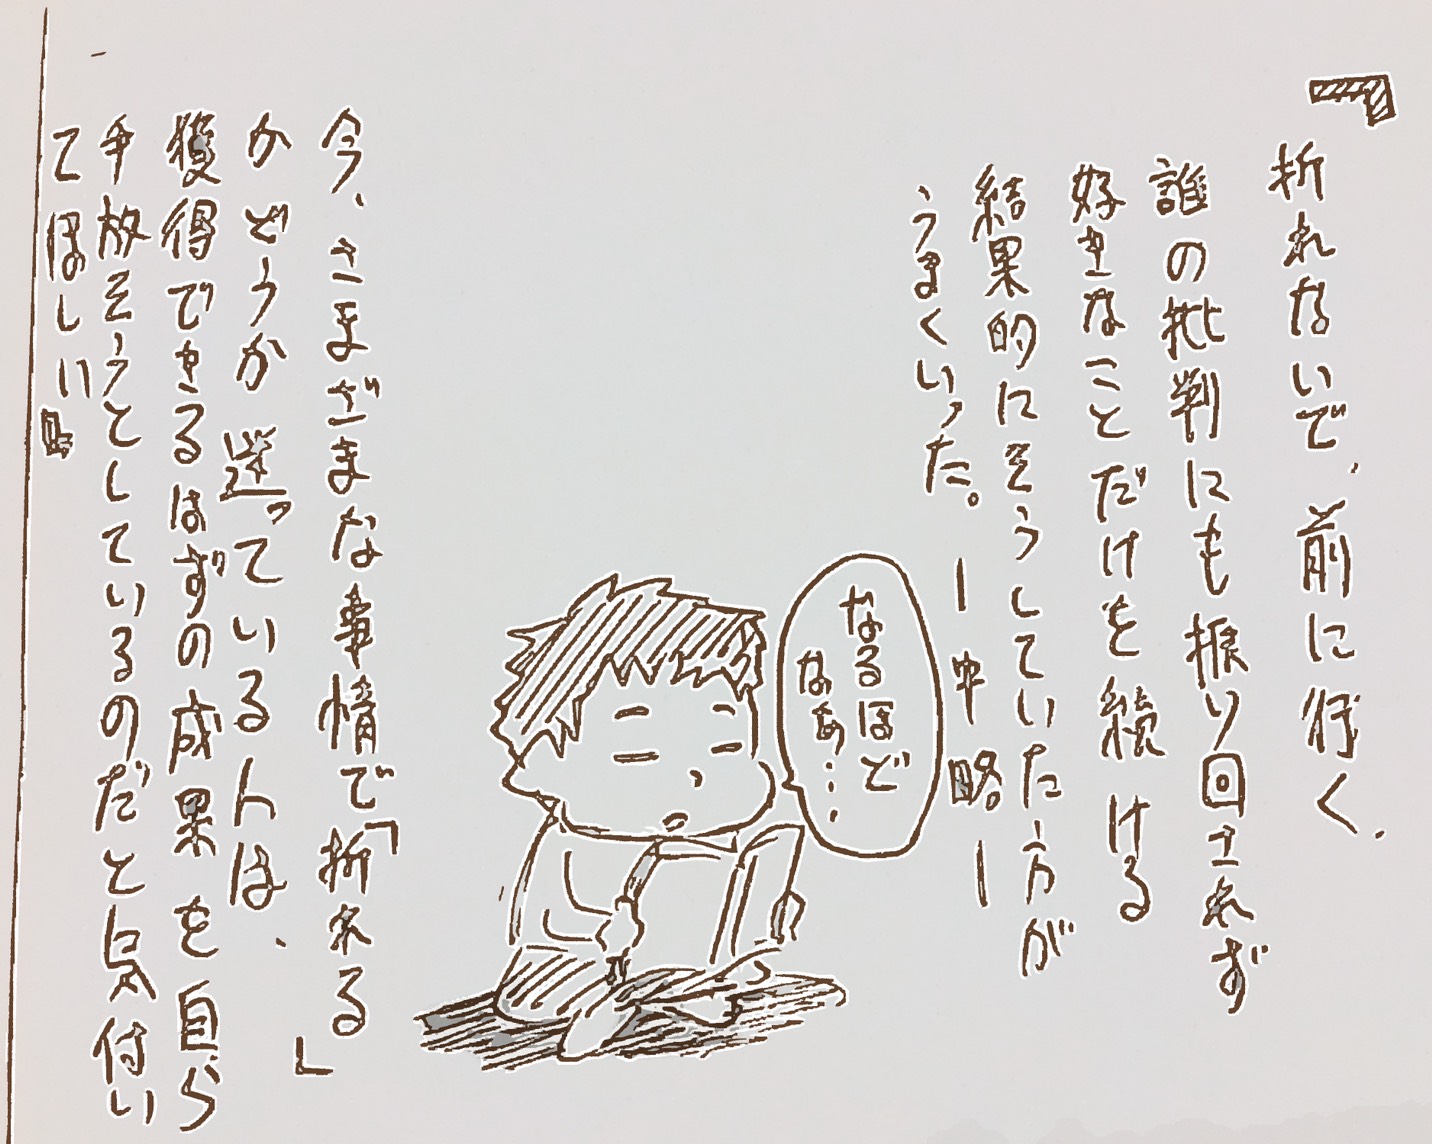 『折れないで、前に行く、
誰の批判にも振り回されず
好きなことだけを続ける
結果的にそうしていた方が
うまくいった。
ー中略ー
なるほど
なぁ…
今、さまざまな事情で「折れる」
かどうか迷っている人は、
獲得できるはずの成果を自ら
手放そうとしているのだと気付い
てほしい』